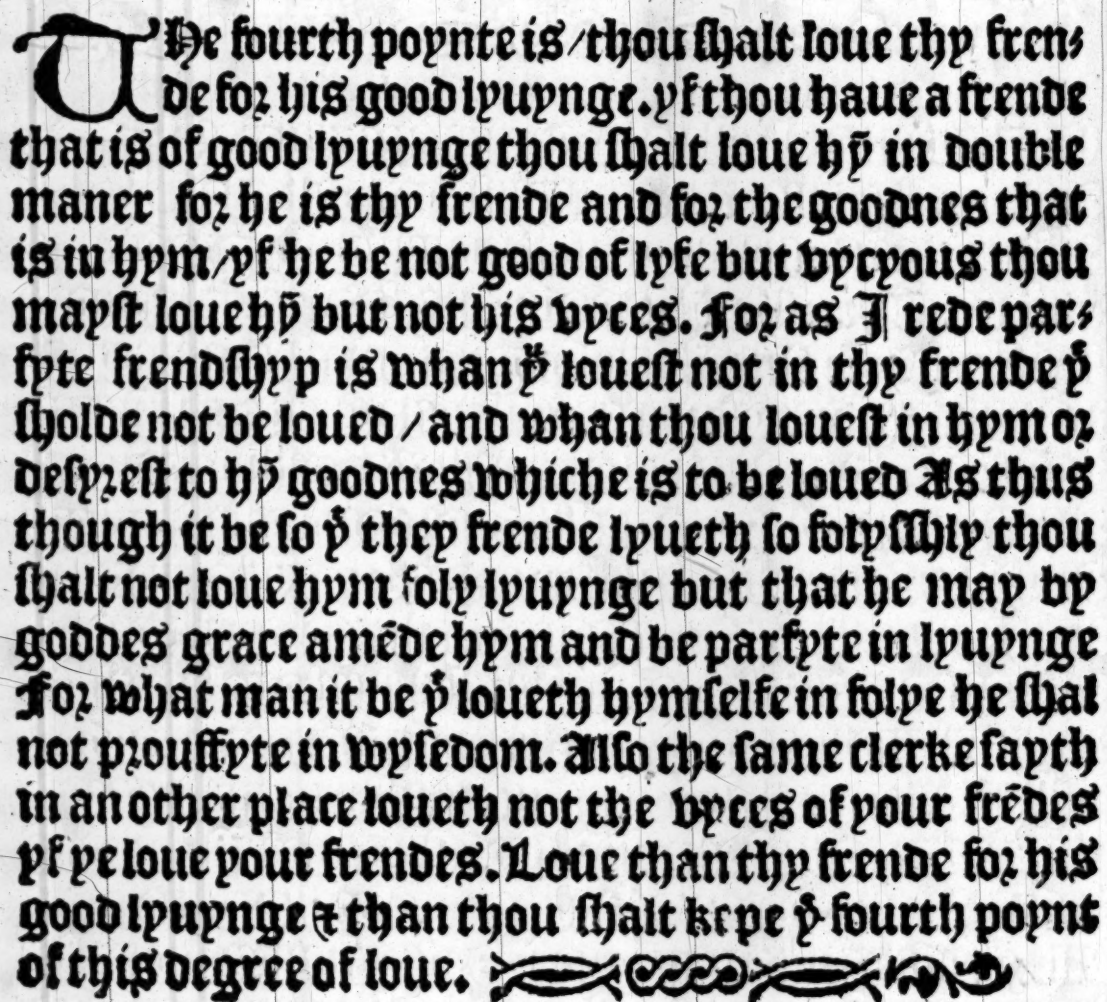 THe fourth poynte is/thou shalt loue thy fren⸗
de for his good lyuynge.yf thou haue a frende
that is of good lyuynge thou shalt loue hȳ in double
maner for he is thy frende and for the goodnes that
is in hym/yf he be not good of lyfe but vycyous thou
mayst loue hȳ but not his vyces. For as I rede par⸗
fyte frendshyp is whan yͧ louest not in thy frende yͭ
sholde not be loued/and whan thou louest in hym or
desyrest to hȳ goodnes whiche is to be loued As thus
though it be so yͭ they frende lyueth so folysshly thou
shalt not loue hym foly lyuynge but that he may by
goddes grace amēde hym and be parfyte in lyuynge
For what man it be yͭ loueth hymselfe in folye he shal
not prouffyte in wysedom. Also the same clerke sayth
in an other place loueth not the vyces of your frēdes
yf ye loue your frendes. Loue than thy frende for his
good lyuynge & than thou shalt kepe yͤ fourth poynt
of this degree of loue.